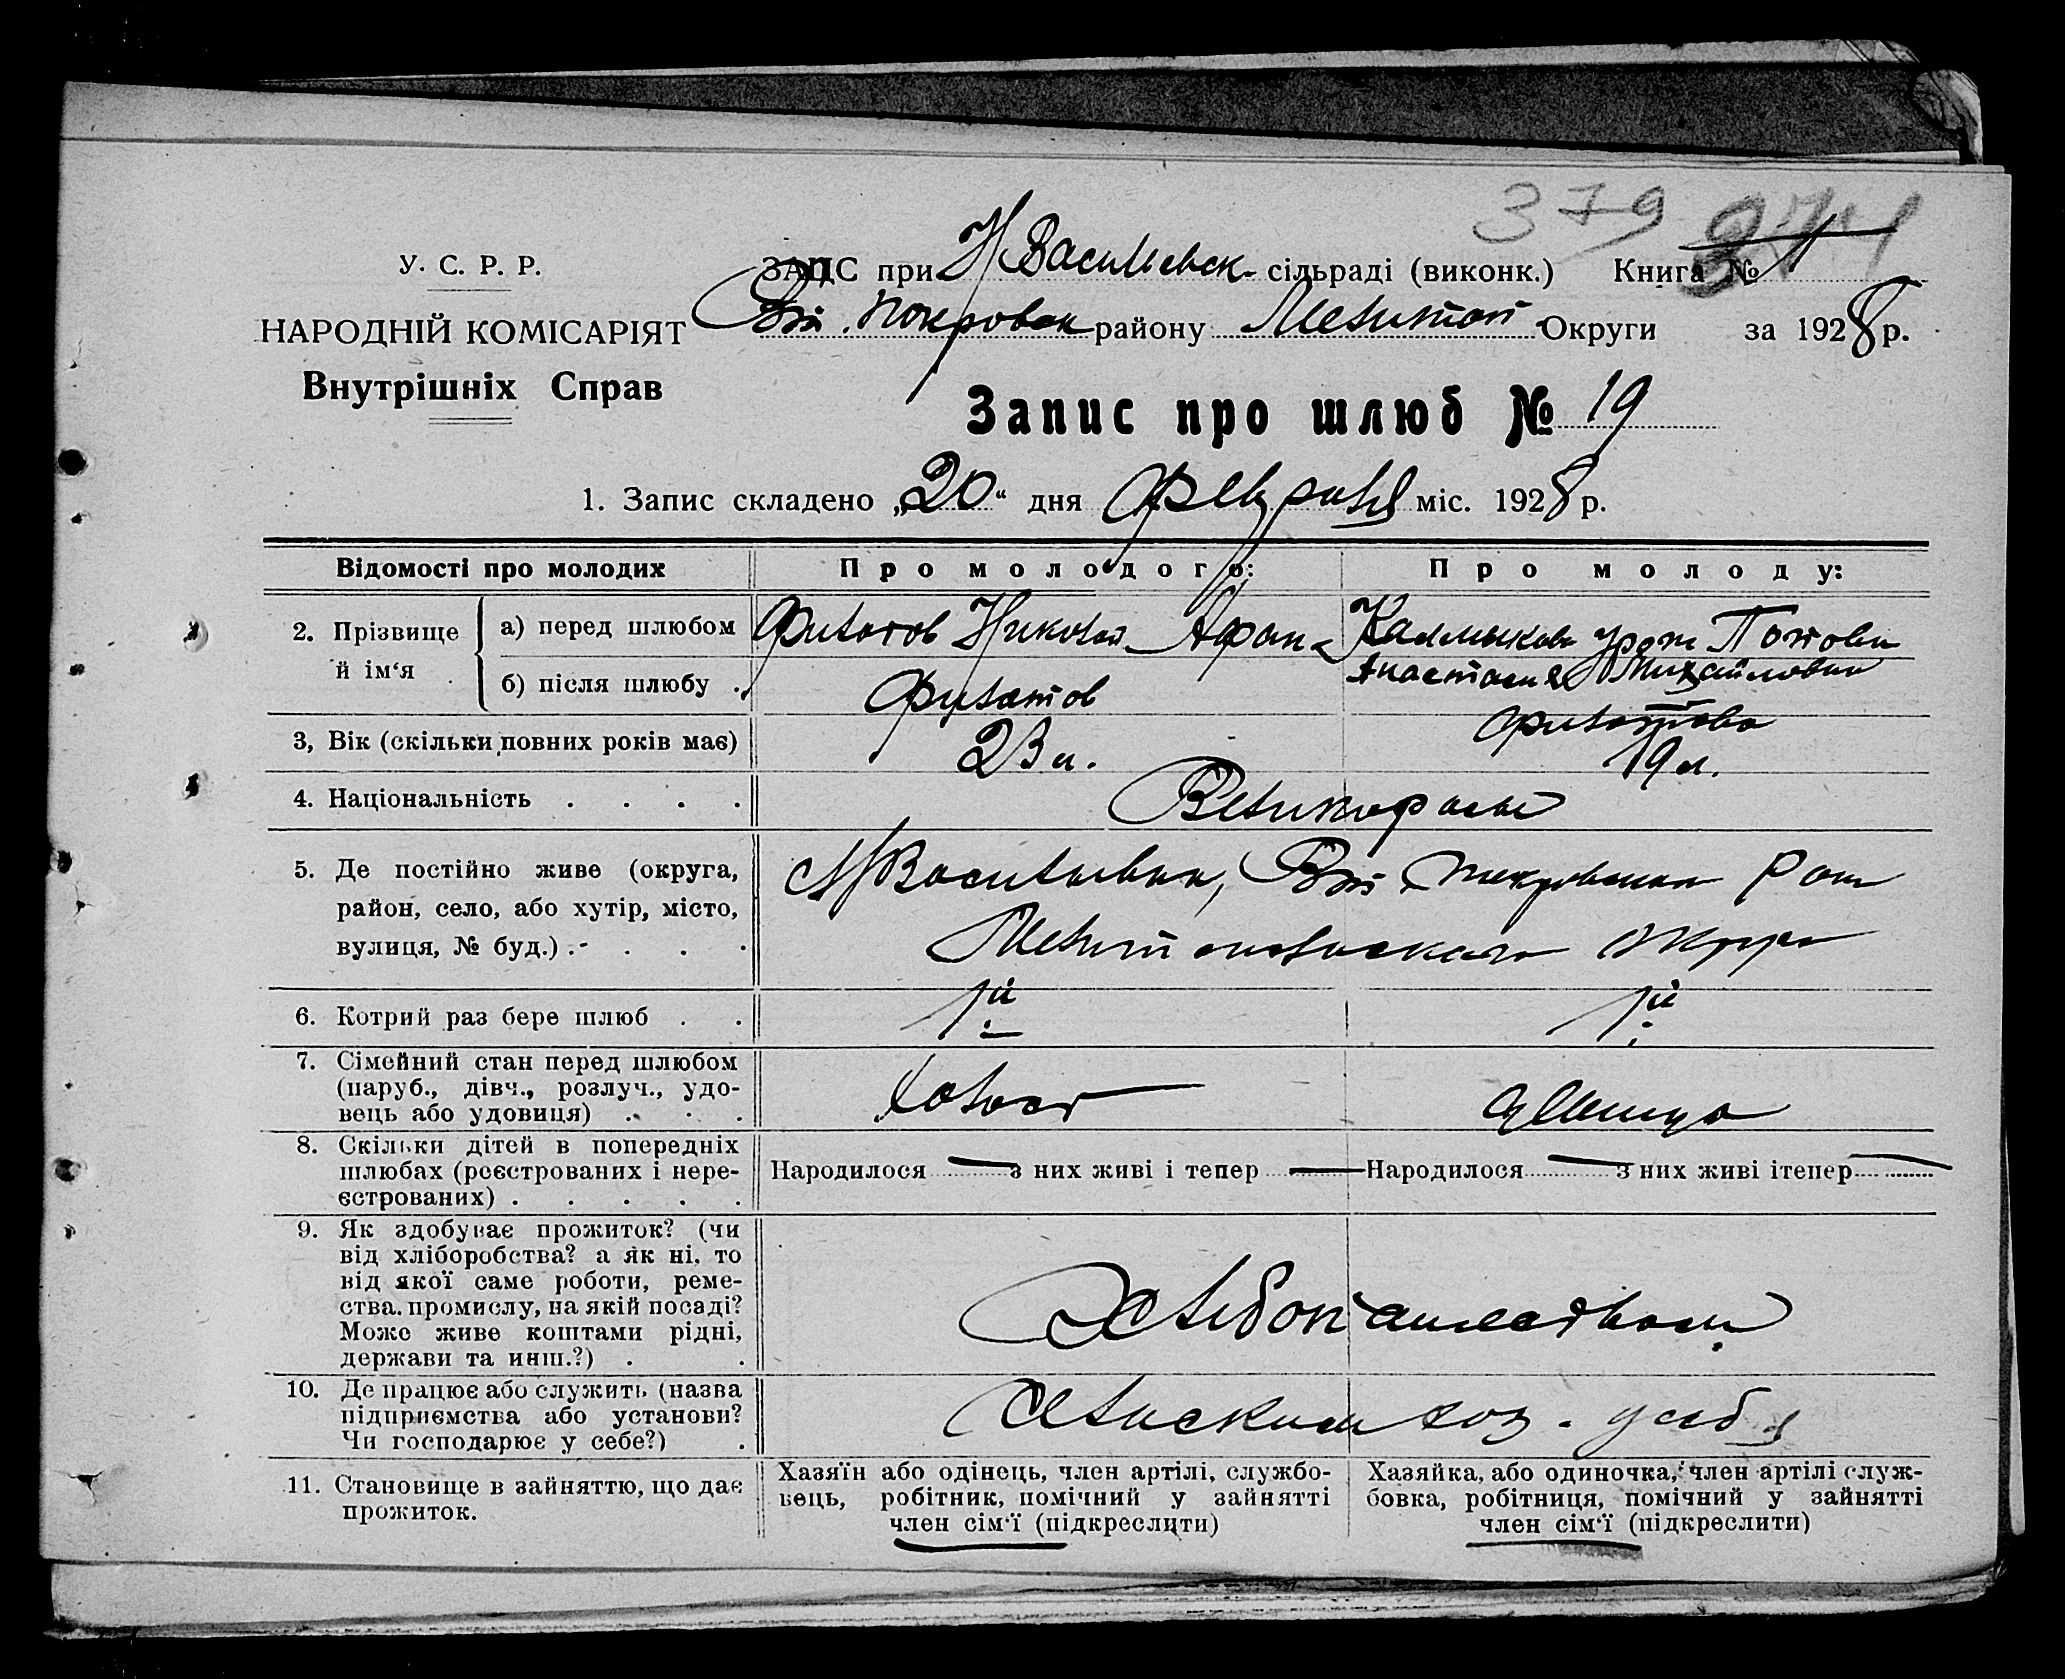 379 374
У. С. Р. Р.
НАРОДНІЙ КОМІСАРІЯТ
Внутрішніх Справ
ЗАПС при Н Васильевск. сільраді (виконк.) Книга № 1
Покровск району Мелитоп. Округи за 1928 р.
Запис про шлюб № 19
1. Запис складено „20“ дня февраля міс. 1928 р.
Відомості про молодих
Про молодого:
Про молоду:
2. Прізвище й ім‘я
а) перед шлюбом
Филатов Николай Афан
Калмыкова урож
Анастасия Михайловна
б) після шлюбу .
Филатов
Филатова
3, Вік (скільки повних років має)
23 л.
19 л.
4. Національність . . . .
Великороссы
5. Де постійно живе (округа,
район, село, або хутір, місто,
вулиця, № буд.) . . . .
Н Васильевка, Покровского рай
Мелитопольского округа
6. Котрий раз бере шлюб . .
1й
1й
7. Сімейний стан перед шлюбом
(паруб., дівч., розлуч., удо-
вець або удовиця) . . .
холост
девица
8. Скільки дітей в попередніх
шлюбах (реєстрованих і нере-
єстрованих) . . . . .
Народилося — з них живі і тепер —
Народилося — з них живі ітепер —
9. Як здобуває прожиток? (чи
від хліборобства? а як ні, то
від якої саме роботи, реме-
ства, промислу, на якій посаді?
Може живе коштами рідні,
держави та инш.?) . .
Хлебопашеством
10. Де працює або служить (назва
підприємства або установи?
Чи господарює у себе?) .
Сельским хоз. у себя
11. Становище в зайняттю, що дає
прожиток.
Хазяїн або одінець, член артілі, службо-
вець, робітник, помічний у зайнятті
член сім‘ї (підкреслити)
Хазяйка, або одиночка, член артілі служ-
бовка, робітниця, помічний у зайнятті
член сім‘ї (підкреслити)